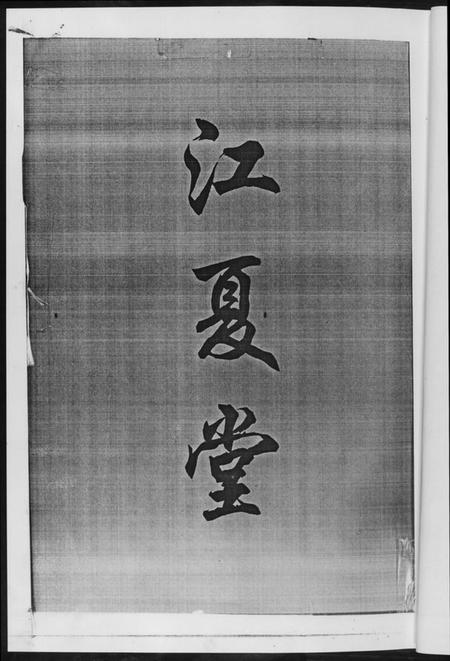 江夏堂